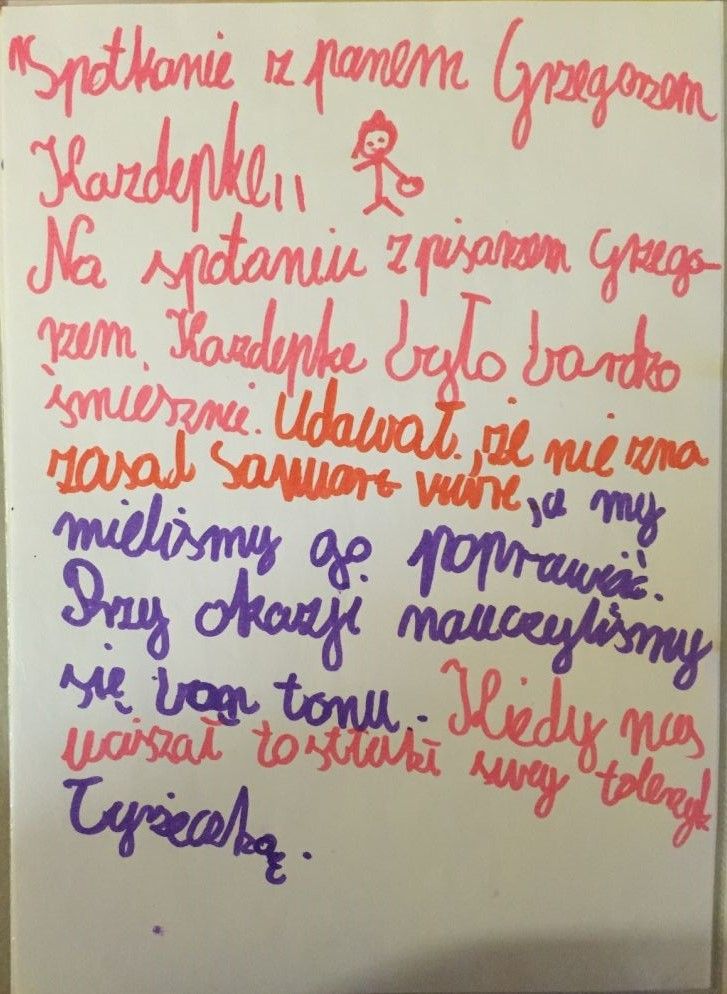 "Spotkanie z panem Grzegorzem
Kazdepke"
Na spotaniu z pisarzem Grzego-
rzem Kazdepke było bardzo
śmiesznie. Udawał, że nie zna
zasad savuarz vivre, a my
mieliśmy go poprawić.
Przy okazji nauczyliśmy
się bon tonu. Kiedy nas
uciszał to stłukł swój talerzyk
łyżeczką.